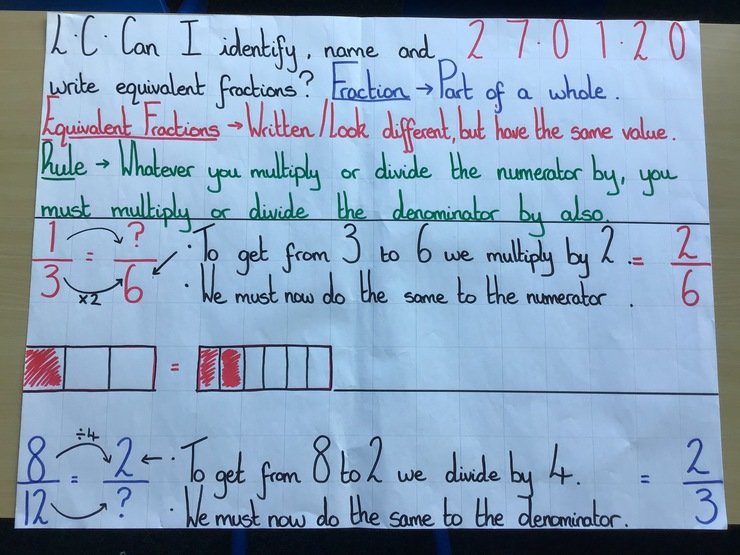 L.C. Can I identify, name and 27.01.20
write equivalent fractions? Fraction → Part of a whole.
Equivalent Fractions → Written/Look different, but have the same value.
Rule → Whatever you multiply or divide the numerator by, you
must multiply or divide the denominator by also.
1/3 = ?/6 · To get from 3 to 6 we multiply by 2. = 2/6
×2 · We must now do the same to the numerator.
=
÷4
8/12 = 2/? ← · To get from 8 to 2 we divide by 4. = 2/3
· We must now do the same to the denominator.